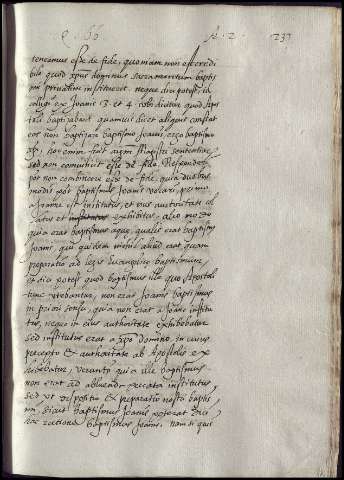 Q. 66 A. 2. 237
teneamus esse de fide, quoniam non est credi
bile quod xpus dominus sacramentum baptis
mi privatim institueret. neque dici potest, id
colligi ex Joannis 3 et 4 ubi dicitur quod Aposto
toli baptizabant quamvis dicet aliquis constat
eos non baptizasse baptismo Joannis, ergo baptismo
xpi, hoc enim licet Magistri sententiarum
sed non convincit esse de fide. Respondetur
non convincere esse de fide, quia duobus
modis potest baptismus Joannis vocari, primo
a Joanne est institutus, et eius auctoritate col
latus et exhibitus, alio modo
quia erat baptismus aquae, qualis erat baptismus
Joannis, qui quidem nihil aliud erat quam
praeparatio ad legis evangelicae baptismum,
et dici potest quod baptismus ille quo Aposto
utebantur, non erat Joannis baptismus
in priori sensu, quia non erat a Joanne institu
tus, neque in eius authoritate exhibebatur
sed institutus erat a xpo domino, in cuius
praecepto et authoritate ab Apostolis ex
hibebatur, verunt quia ille baptismus
non erat ad abluenda peccata institutus,
sed ut dispositio et praeparatio nostri baptis
mi, sicut baptismus Joannis poterat dici
hac ratione baptismus Joannis. nam si quis